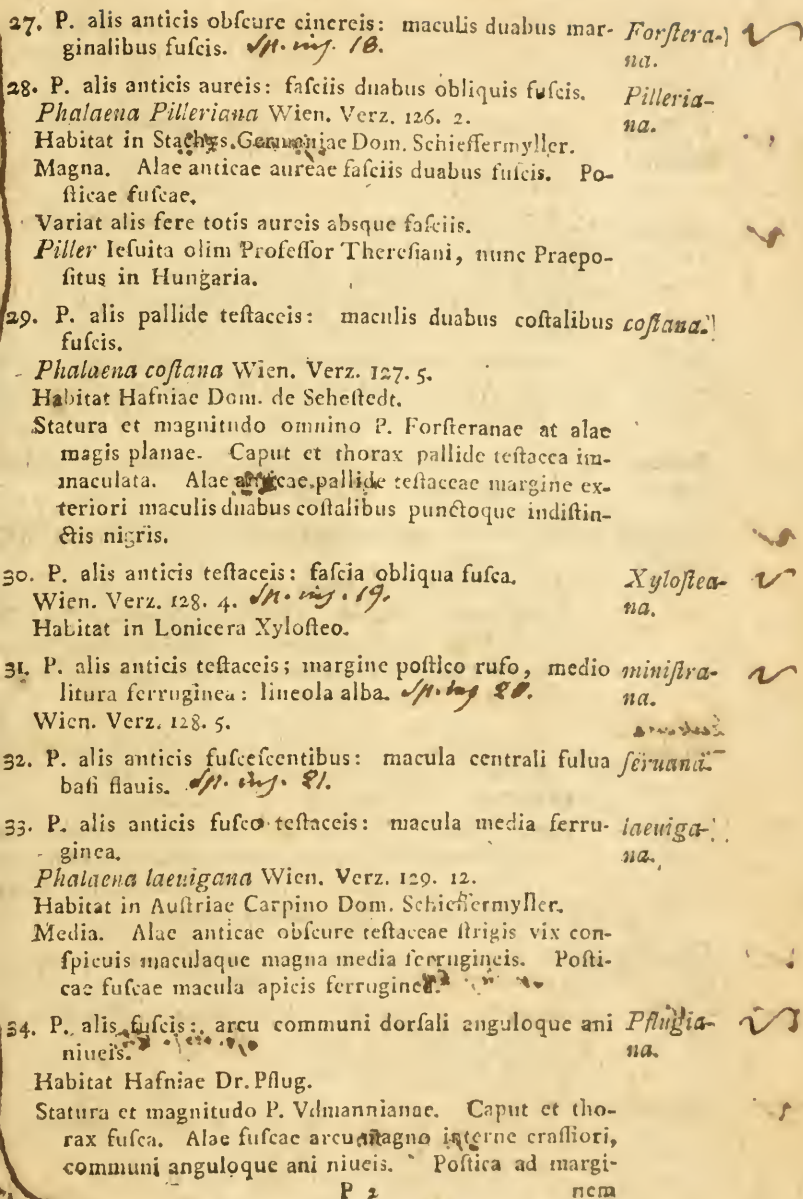 27. P. alis anticis obſcure cinereis: maculis duabus mar- Forſtera-
ginalibus fuſcis. Sp. inſ. 18. na.
28. P. alis anticis aureis: faſciis duabus obliquis fuſcis. Pilleria-
Phalaena Pilleriana Wien. Verz. 126. 2. na.
Habitat in Stachys. Germaniae Dom. Schieffermyller.
Magna. Alae anticae aureae faſciis duabus fuſcis. Po-
ſticae fuſcae.
Variat alis fere totis aureis absque faſciis.
Piller Ieſuita olim Profeſſor Thereſiani, nunc Praepo-
ſitus in Hungaria.
29. P. alis pallide teſtaceis: maculis duabus coſtalibus coſtana.
fuſcis.
Phalaena coſtana Wien. Verz. 127. 5.
Habitat Hafniae Dom. de Seheſtedt.
Statura et magnitudo omnino P. Forſteranae at alae
magis planae. Caput et thorax pallide teſtacea im-
maculata. Alae anticae pallide teſtaceae margine ex-
teriori maculis duabus coſtalibus punctoque indiſtin-
ctis nigris.
30. P. alis anticis teſtaceis: faſcia obliqua fuſca. Xyloſtea-
Wien. Verz. 128. 4. Sp. inſ. 19. na.
Habitat in Lonicera Xyloſteo.
31. P. alis anticis teſtaceis; margine poſtico rufo, medio miniſtra-
litura ferruginea: lineola alba. Sp. inſ. 20. na.
Wien. Verz. 128. 5.
32. P. alis anticis fuſceſcentibus: macula centrali fulua ſeruana.
baſi flauis. Sp. inſ. 21.
33. P. alis anticis fuſco teſtaceis: macula media ferru- laeuiga-
ginea. na.
Phalaena laeuigana Wien. Verz. 129. 12.
Habitat in Auſtriae Carpino Dom. Schieffermyller.
Media. Alae anticae obſcure teſtaceae ſtrigis vix con-
ſpicuis maculaque magna media ferrugineis. Poſti-
cae fuſcae macula apicis ferruginea.
34. P. alis fuſcis: arcu communi dorſali anguloque ani Pflugia-
niueis. na.
Habitat Hafniae Dr. Pflug.
Statura et magnitudo P. Vdmannianae. Caput et tho-
rax fuſca. Alae fuſcae arcu magno interne craſſiori,
communi anguloque ani niueis. Poſtica ad margi-
P 2 nem